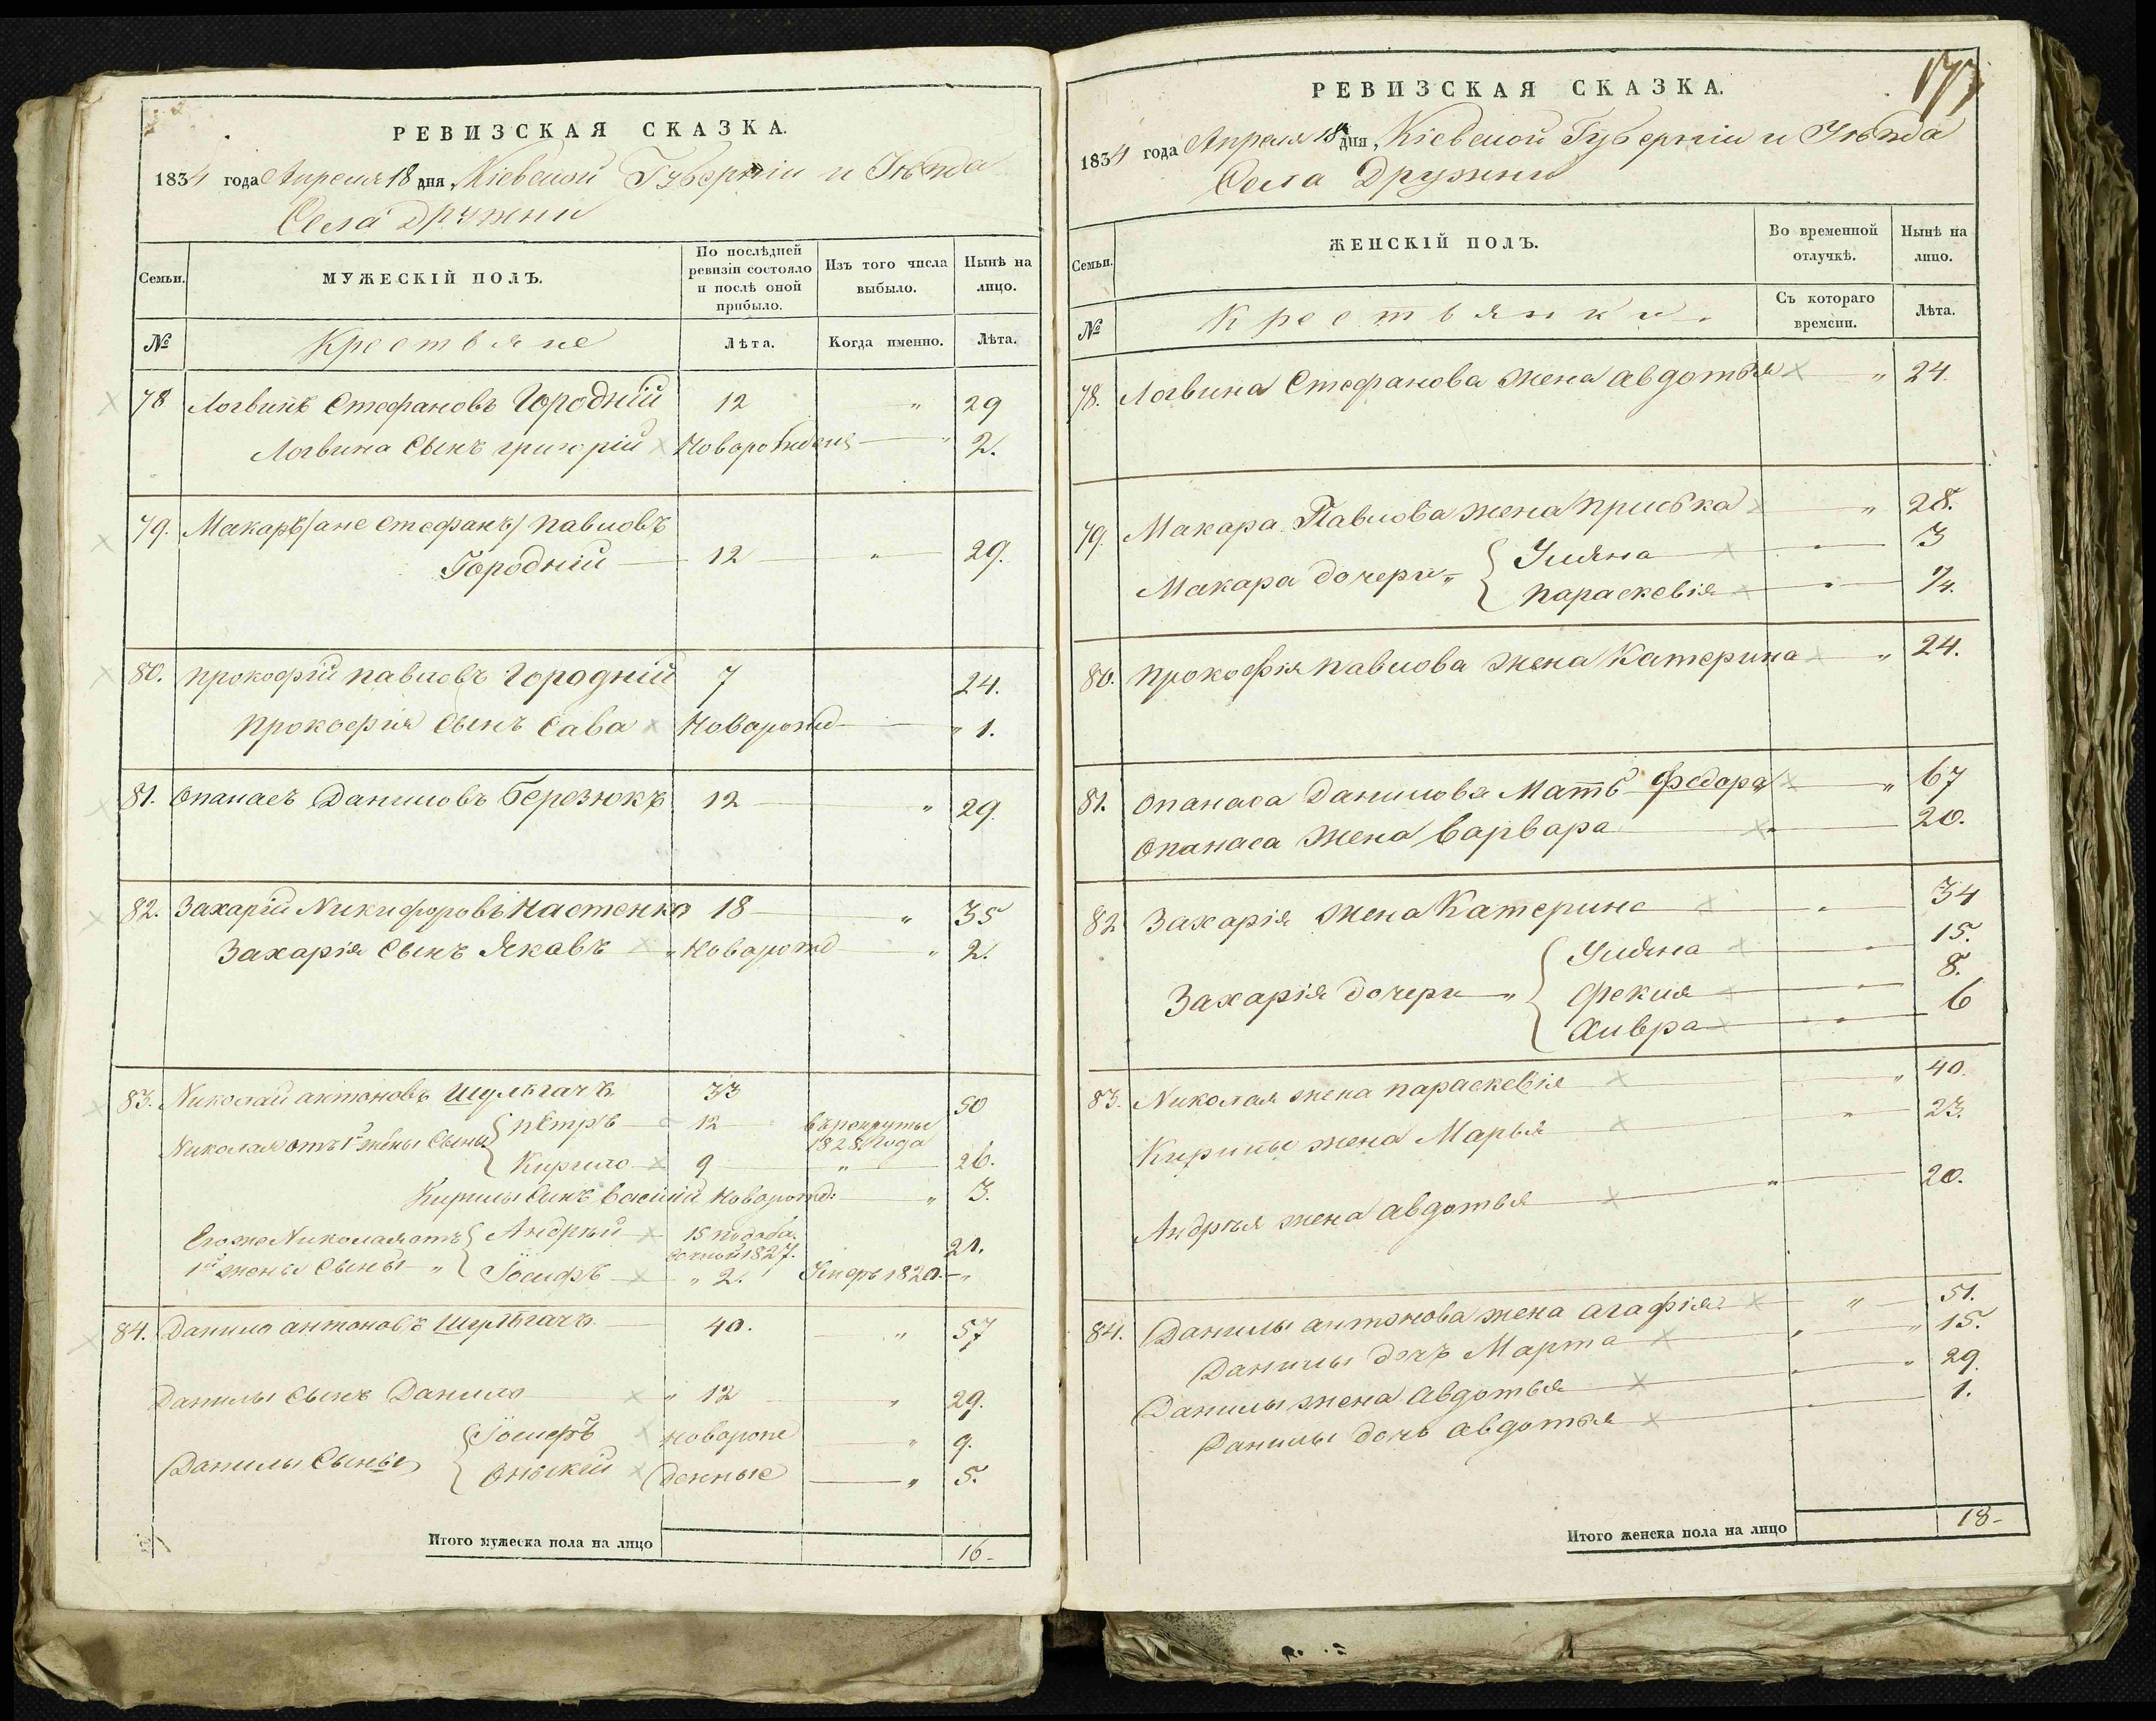 РЕВИЗСКАЯ СКАЗКА.
1834 года Апреля 18 дня, Кіевской Губерніи и Уѣзда
Села Дружни
Семьи.
МУЖЕСКІЙ ПОЛЪ.
По послѣдней ревизіи состояло и послѣ оной прибыло.
Изъ того числа выбыло.
Нынѣ на лицо.
№
Крестьяне
Лѣта.
Когда именно.
Лѣта.
78 Логвинъ Стефановъ Городній 12 " 29
Логвина Сынъ григорій Новорожденъ " 2.
79. Макаръ /ане Стефанъ/ павловъ
Городній 12 " 29.
80. прокофій павловъ Городній 7 24.
прокофія Сынъ Сава Новорожд " 1.
81. Опанасъ Даниловъ Березюкъ 12 " 29.
82. Захарій Никифоровъ Настенко 18 " 35
Захарія Сынъ Якавъ " Новорожд " 2.
83. Николай антоновъ Шулгачъ 33 50
Николая отъ 1й жены Сыны { пѣтръ 12 въ рекруты 1828 года
Кирило 9 " 26.
Кирилы Сынъ василій Новорожд: " 3.
Егоже Николая отъ 1й жены Сыны " { Андрѣй 15 1827. 21.
Іосифъ " 2. Умеръ 1820. "
84. Данило антоновъ Шулгачъ 40. " 57
Данилы Сынъ Данило " 12 " 29.
Данилы Сыны { Іосифъ новорож " 9.
Онысκій денные " 5.
Итого мужеска пола на лицо 16-
177
РЕВИЗСКАЯ СКАЗКА.
1834 года Апреля 18 дня, Кіевской Губерніи и Уѣзда
Села Дружни
Семьи.
ЖЕНСКІЙ ПОЛЪ.
Во временной отлучкѣ.
Нынѣ на лицо.
№
Крестьянки.
Съ котораго времени.
Лѣта.
78. Логвина Стефанова жена авдотья " 24.
79. Макара Павлова жена приська " 28.
Макара дочери " { Уляна " 3
параскевія " 1/4.
80. прокофія павлова жена Катерина " 24.
81. Опанаса Данилова Мать Федора " 67
Опанаса жена варвара " 20.
82 Захарія жена Катерина " 34
Захарія дочери " { Уляна " 15.
Фекла " 8.
Хивра " 6
83. Николая жена параскевія " 40.
Кирилы жена Марья " 23
Андрѣя жена авдотья " 20.
84. Данилы антонова жена агафія " 51.
Данилы дочъ Марта " 15.
Данилы жена авдотья " 29.
Данилы дочь авдотья " 1.
Итого женска пола на лицо 18-